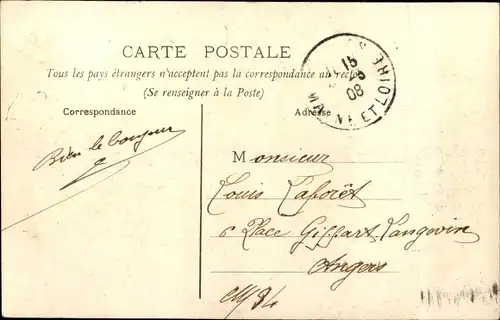 CARTE POSTALE
Tous les pays étrangers n'acceptent pas la correspondance au recto
(Se renseigner à la Poste)
Correspondance
Adresse
15
08
MAINE ET LOIRE
Bien le bonjour
Monsieur
Louis Laforêt
6 Place Giffart Langevin
Angers